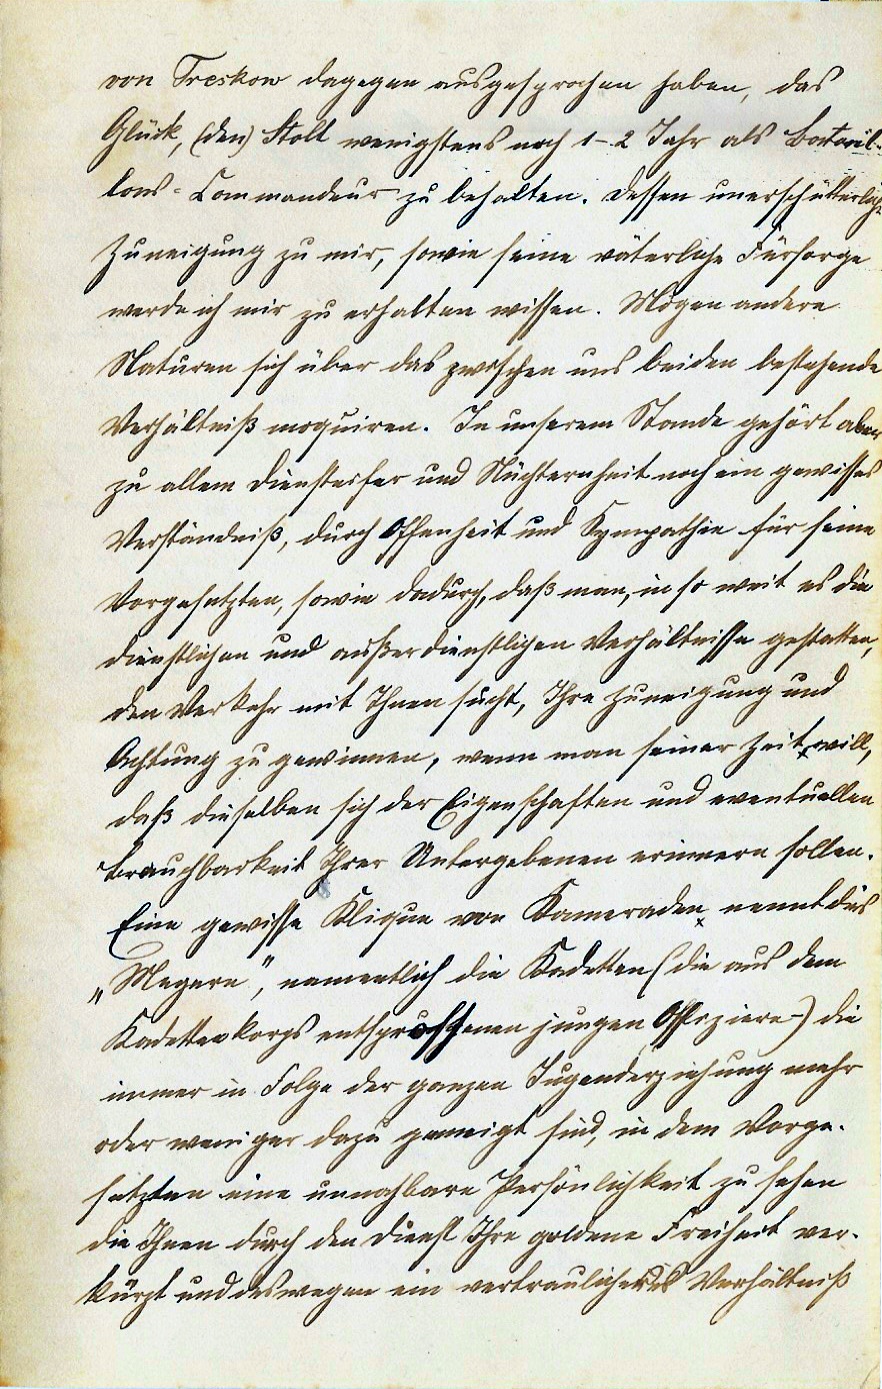 von Treskow dagegen ausgesprochen haben, das
Glück, (den) Stolt wenigstens noch 1–2 Jahr als Batail-
lons-Commandeur zu behalten. Dessen unerschütterliche
Zuneigung zu mir, sowie seine väterliche Fürsorge
werde ich mir zu erhalten wissen. Mögen andere
Naturen sich über das zwischen uns beiden bestehende
Verhältniß moquiren. In unserem Stande gehört aber
zu allem Diensteifer und Nüchternheit noch ein gewisses
Verständniß, durch Offenheit und Sympathie für seine
Vorgesetzten, sowie dadurch, daß man, in so weit es die
dienstlichen und außerdienstlichen Verhältnisse gestatten,
den Verkehr mit Ihnen sucht, Ihre Zuneigung und
Achtung zu gewinnen, wenn man seiner Zeit will,
daß dieselben sich der Eigenschaften und eventuellen
Brauchbarkeit Ihrer Untergebenen erinnern sollen.
Eine gewisse Klique von Kameraden nennt dies
„Megern“, namentlich die Kadetten (die aus dem
Kadettenkorps entsprossenen jungen Offiziere) die
immer in Folge der ganzen Jugenderziehung mehr
oder weniger dazu geneigt sind, in dem Vorge-
setzten eine unnahbare Persönlichkeit zu sehen
die Ihnen durch den Dienst Ihre goldene Freiheit ver-
kürzt und deswegen ein vertraulicheres Verhältniß